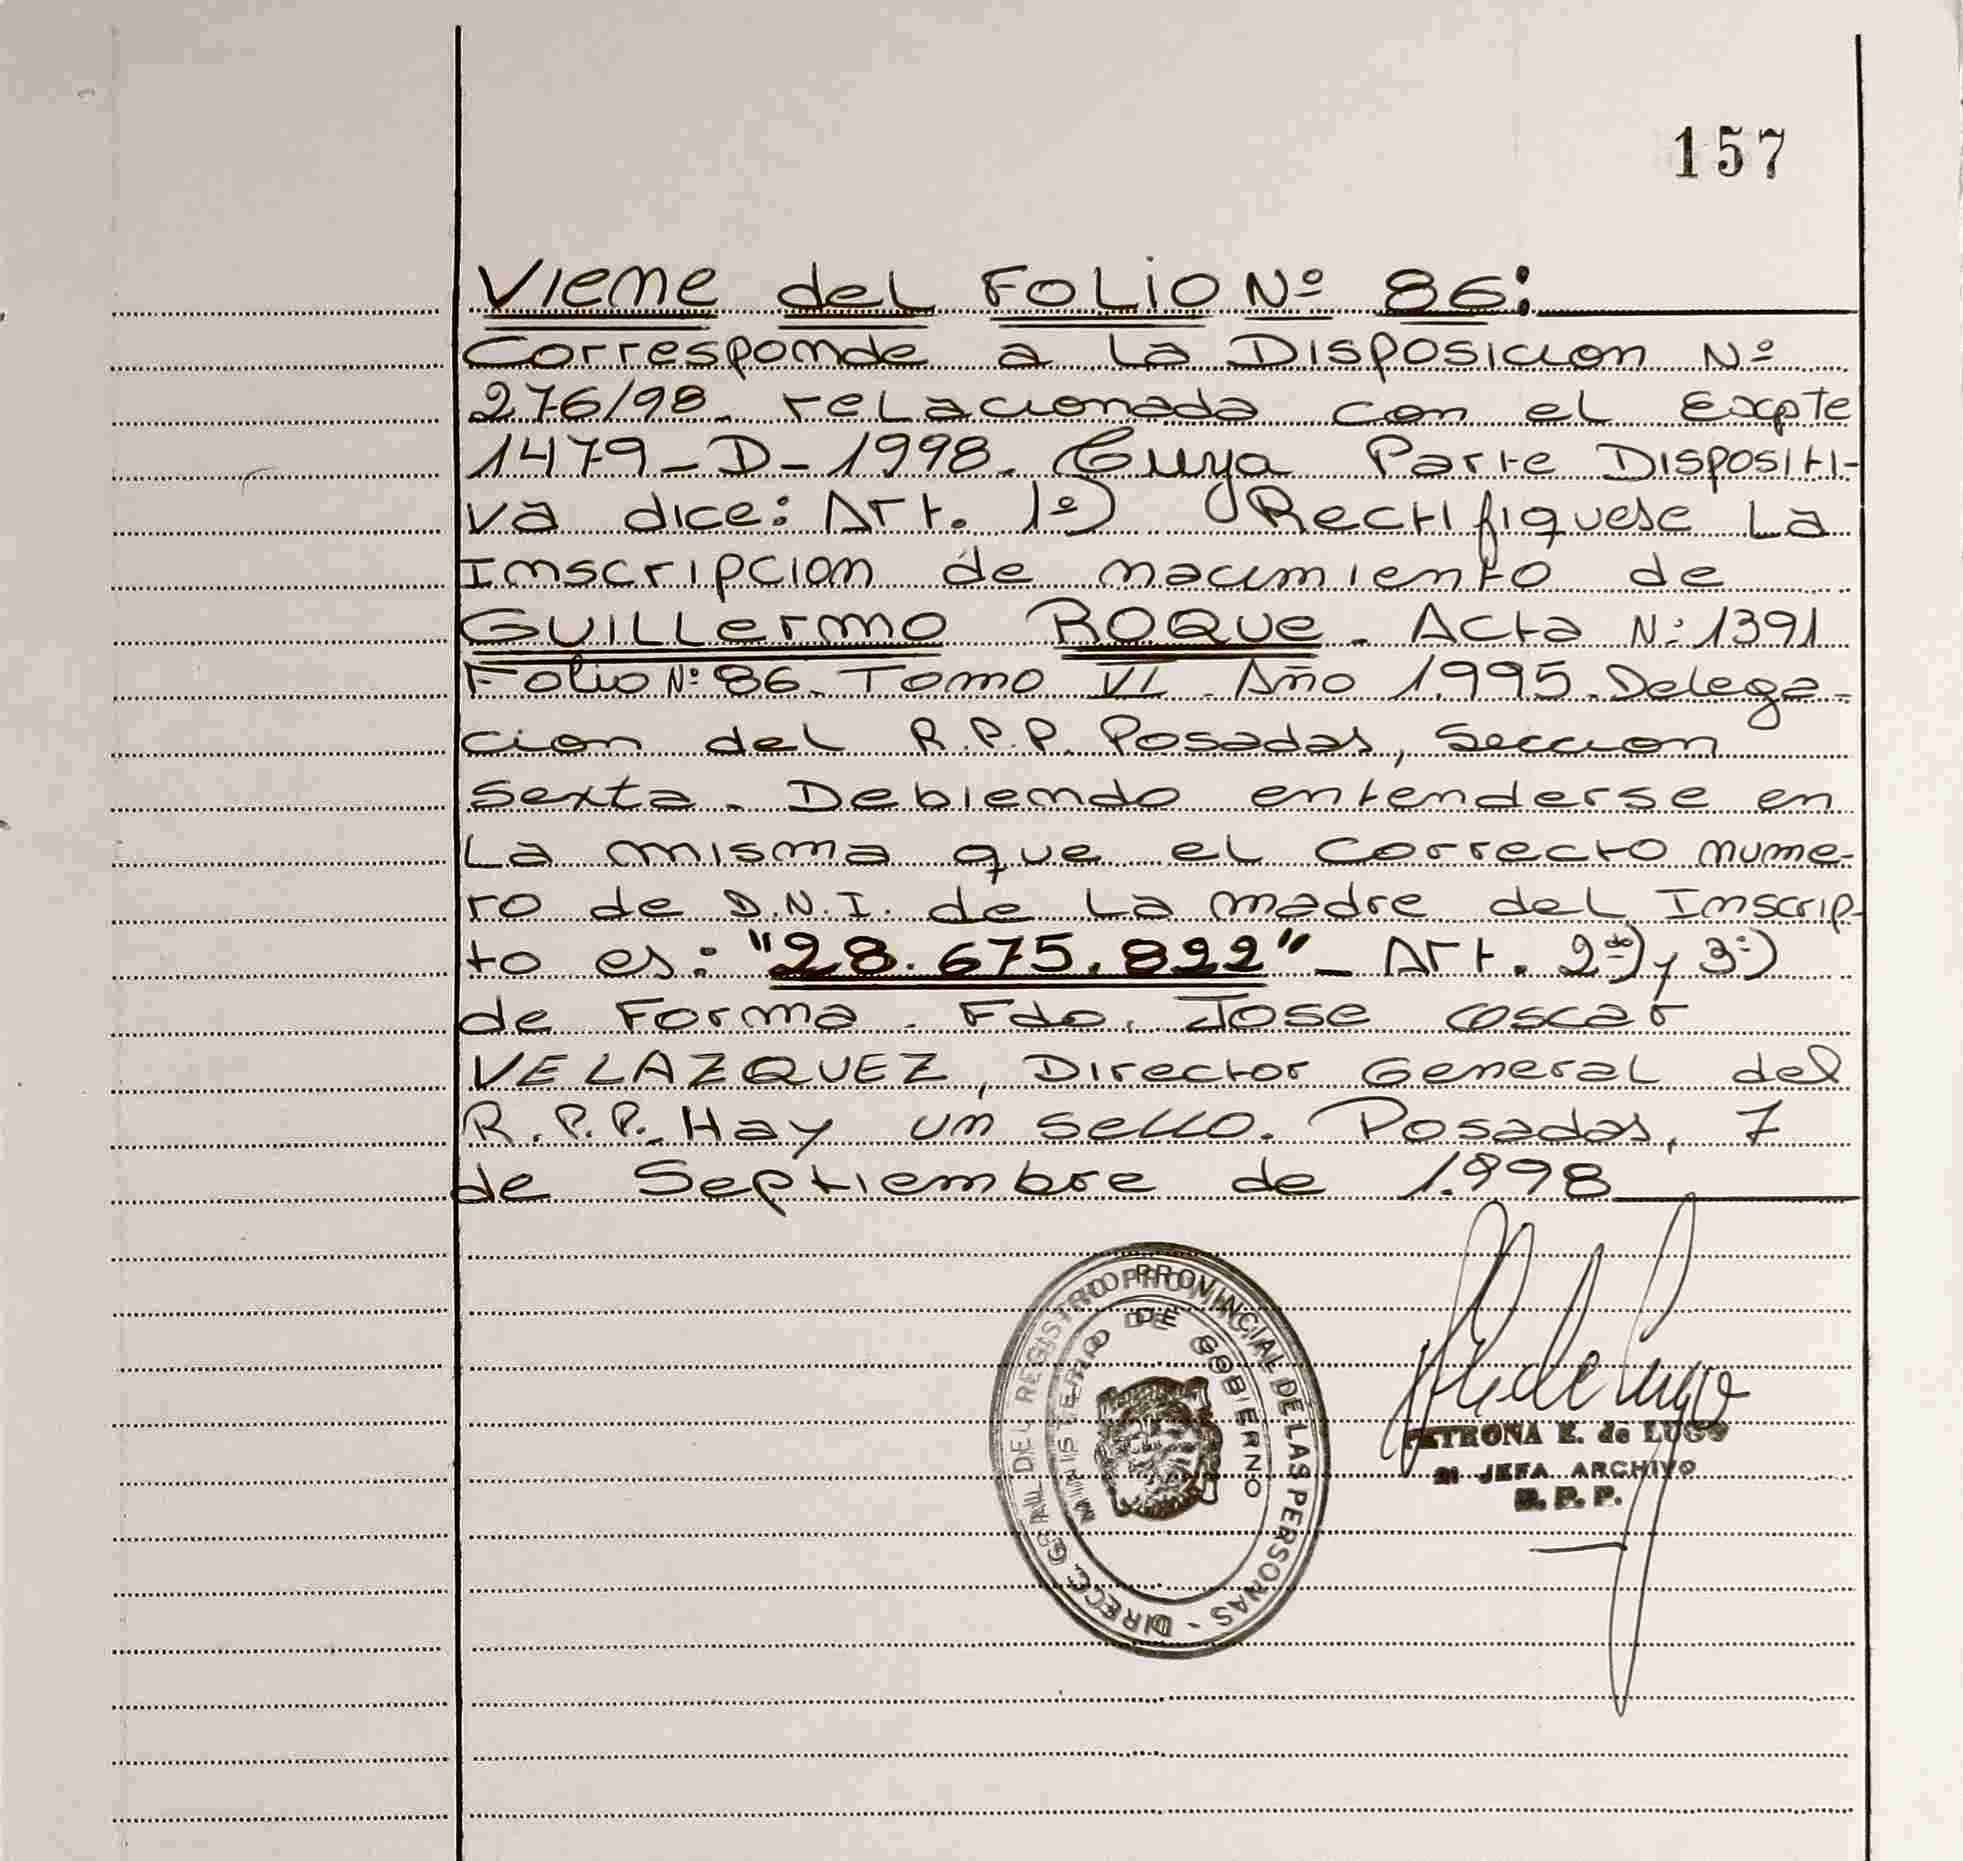 157
Viene del Folio Nº 86:
Corresponde a la Disposicion Nº
276/98. relacionada con el Expte
1479-D-1998. Cuya Parte Dispositi-
va dice: Art. 1º) Rectifiquese la
Inscripcion de nacimiento de
Guillermo ROQUE. Acta Nº 1391
Folio Nº 86. Tomo VI. Año 1995. Delega-
cion del R.P.P. Posadas, Seccion
Sexta. Debiendo entenderse en
la misma que el correcto nume-
ro de D.N.I. de la madre del Inscrip-
to es: "28.675.822" - Art. 2do) y 3º)
de Forma. Fdo. Jose Oscar
VELAZQUEZ, Director General del
R.P.P. Hay un sello. Posadas, 7
de Septiembre de 1.998
DIRECC. GRAL DEL REGISTRO PROVINCIAL DE LAS PERSONAS -
MINISTERIO DE GOBIERNO
PETRONA E. de LUGO
JEFA ARCHIVO
R. P. P.